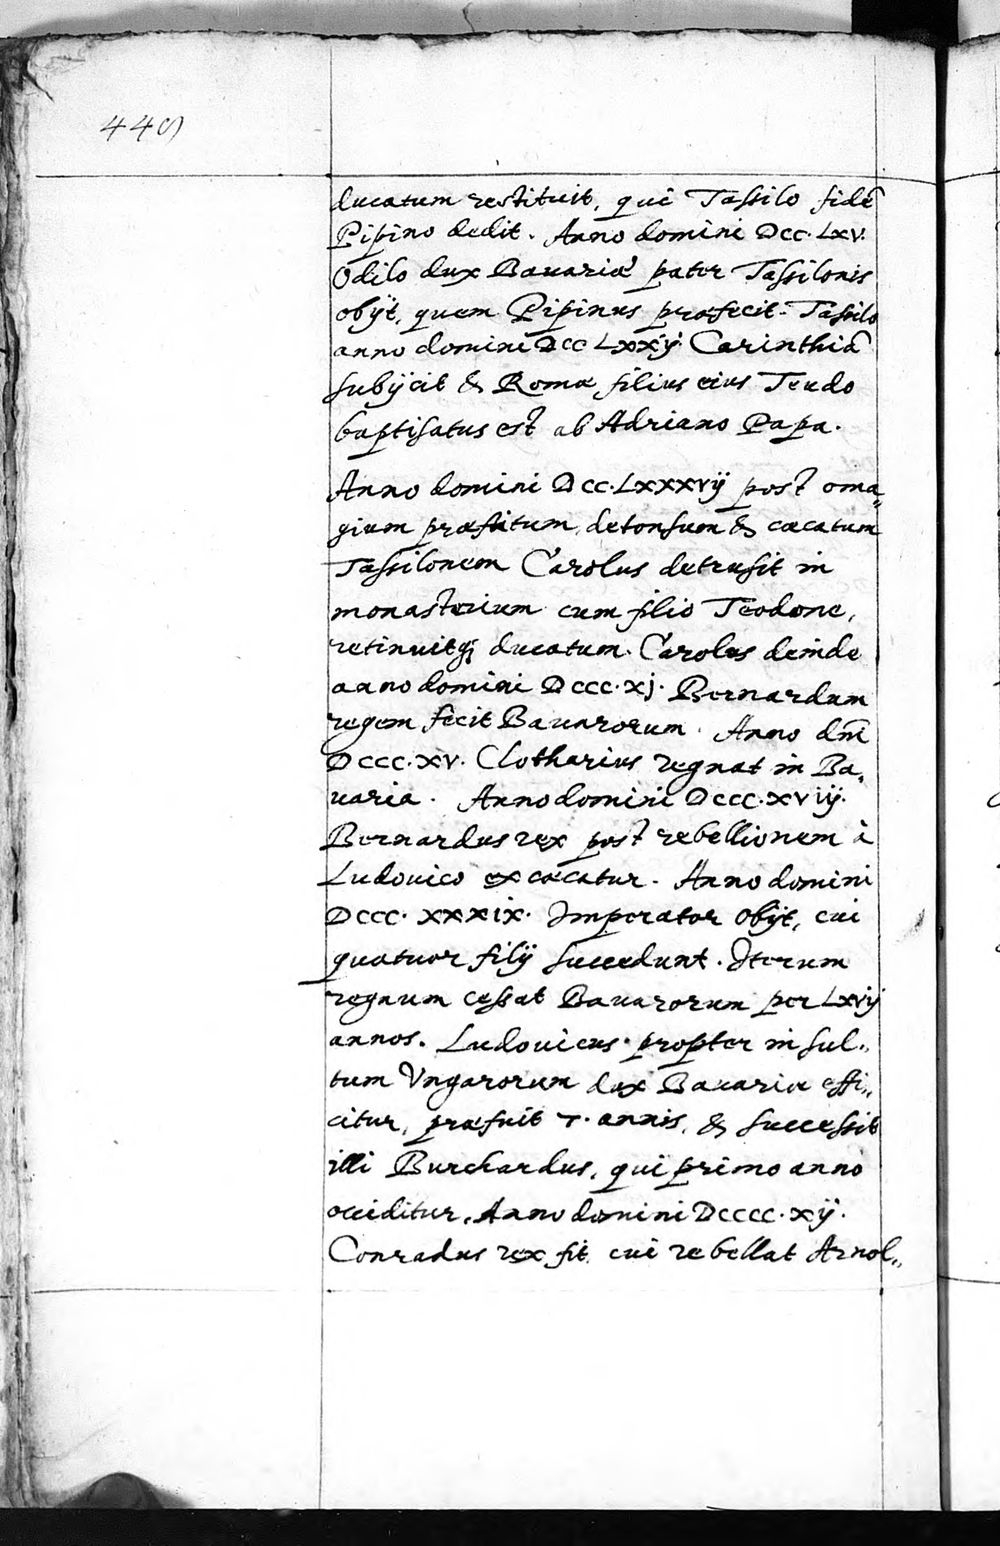 449
ducatum restituit, qui Tassilo fidē
Pipino dedit. Anno domini Dcc. Lxv.
Odilo dux Bauariæ pater Tassilonis
obijt, quem Pipinus præfecit. Tassilo
anno domini Dcc Lxxij Carinthiā
subijcit & Romæ filius eius Teudo
baptisatus est ab Adriano Papa.
Anno domini Dcc. Lxxxvij post oma„
gium præstitum, detonsum & cæcatum
Tassilonem Carolus detrusit in
monasterium cum filio Teodone,
retinuitq; ducatum. Carolus deinde
anno domini Dccc. xj. Bernardum
regem fecit Bauarorum. Anno dnī
Dccc. xv. Clotharius regnat in Ba„
uaria. Anno domini Dccc. xviij.
Bernardus rex post rebellionem à
Ludouico excæcatur. Anno domini
Dccc. xxxix. Imperator obijt, cui
quatuor filij succedunt. Iterum
regnum cessat Bauarorum per Lxvij
annos. Ludouicus propter insul„
tum Vngarorum dux Bauariæ effi„
citur, præfuit 7. annis, & successit
illi Burchardus, qui primo anno
occiditur. Anno domini Dcccc. xij.
Conradus rex fit cui rebellat Arnol„